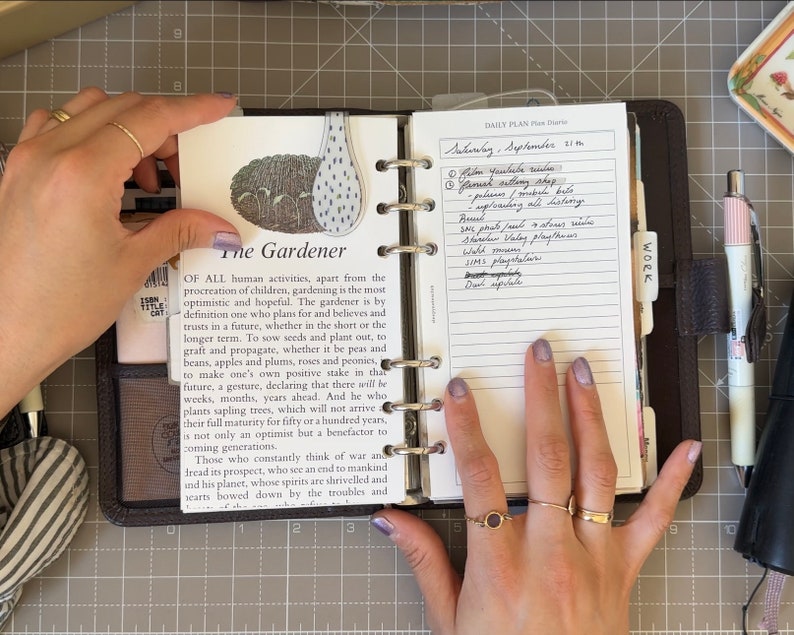 The Gardener
OF ALL human activities, apart from the
procreation of children, gardening is the most
optimistic and hopeful. The gardener is by
definition one who plans for and believes and
trusts in a future, whether in the short or the
longer term. To sow seeds and plant out, to
graft and propagate, whether it be peas and
beans, apples and plums, roses and peonies, is
to make one's own positive stake in that
future, a gesture, declaring that there will be
weeks, months, years ahead. And he who
plants sapling trees, which will not arrive at
their full maturity for fifty or a hundred years,
is not only an optimist but a benefactor to
coming generations.
Those who constantly think of war and
dread its prospect, who see an end to mankind
and his planet, whose spirits are shrivelled and
hearts bowed down by the troubles and
ISBN
TITLE:
CAT:
DAILY PLAN Plan Diario
Saturday, September 21th
① film youtube
② finish setting shop
- policies / mobile bits
- uploading all listings
Stardew Valley playthrus
Watch movies
SIMS playstation
Dark update
WORK